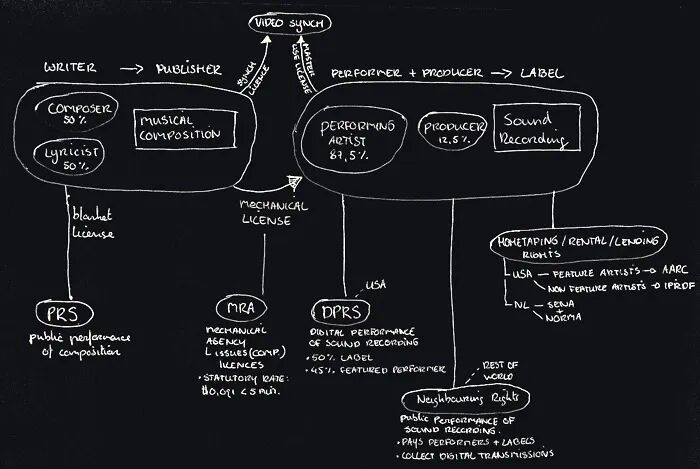 VIDEO SYNCH
SYNCH LICENCE
MASTER USE LICENSE
WRITER → PUBLISHER
PERFORMER + PRODUCER → LABEL
COMPOSER
50%
LYRICIST
50%
MUSICAL
COMPOSITION
PERFORMING
ARTIST
87,5%
PRODUCER
12,5%
Sound
Recording
MECHANICAL
LICENSE
blanket
license
PRS
public performance
of composition
MRA
MECHANICAL
AGENCY
ISSUES (COMP.)
LICENCES
• STATUTORY RATE:
$0,091 < 5 min.
USA
DPRS
DIGITAL PERFORMANCE
OF SOUND RECORDING
• 50% LABEL
• 45% FEATURED PERFORMER
HOMETAPING / RENTAL / LENDING
RIGHTS
USA — FEATURE ARTISTS → AARC
NON FEATURE ARTISTS →
NL — SENA
+ NORMA
REST OF
WORLD
Neighbouring Rights
PUBLIC PERFORMANCE OF
SOUND RECORDING.
• PAYS PERFORMERS + LABELS
• COLLECT DIGITAL TRANSMISSIONS